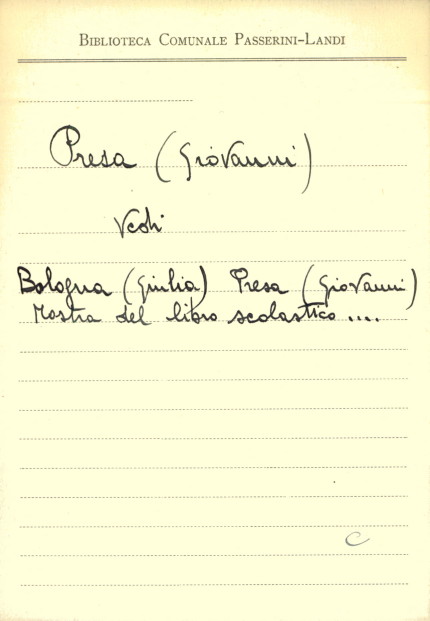 BIBLIOTECA COMUNALE PASSERINI-LANDI
Presa (Giovanni)
Vedi
Bologna (Giulia) Presa (Giovanni)
Mostra del libro scolastico ....
C